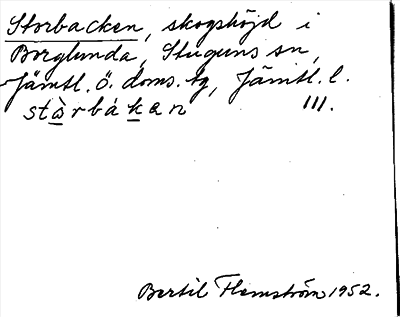 Storbacken, skogshöjd i
Borglunda, Stuguns sn,
Jämtl. ö. doms. tg, Jämtl. l.
stàrbákan III.
Bertil Flemström 1952.